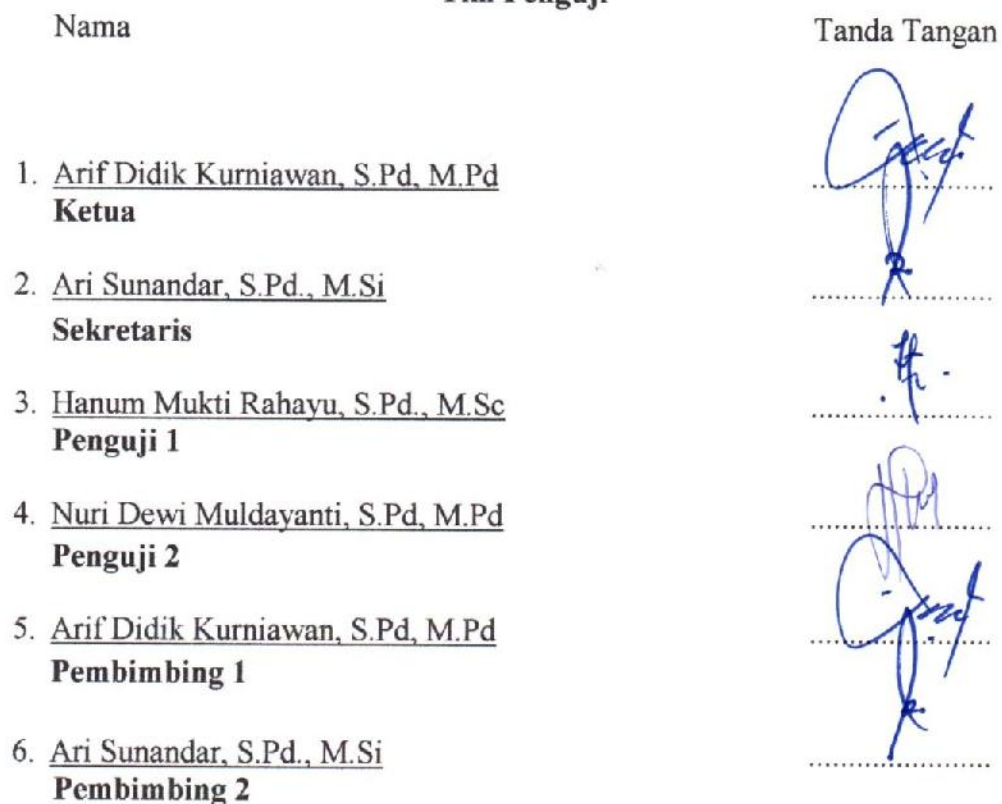 Nama Tanda Tangan
1. Arif Didik Kurniawan, S.Pd, M.Pd
Ketua
2. Ari Sunandar, S.Pd., M.Si
Sekretaris
3. Hanum Mukti Rahayu, S.Pd., M.Sc
Penguji 1
4. Nuri Dewi Muldayanti, S.Pd, M.Pd
Penguji 2
5. Arif Didik Kurniawan, S.Pd, M.Pd
Pembimbing 1
6. Ari Sunandar, S.Pd., M.Si
Pembimbing 2